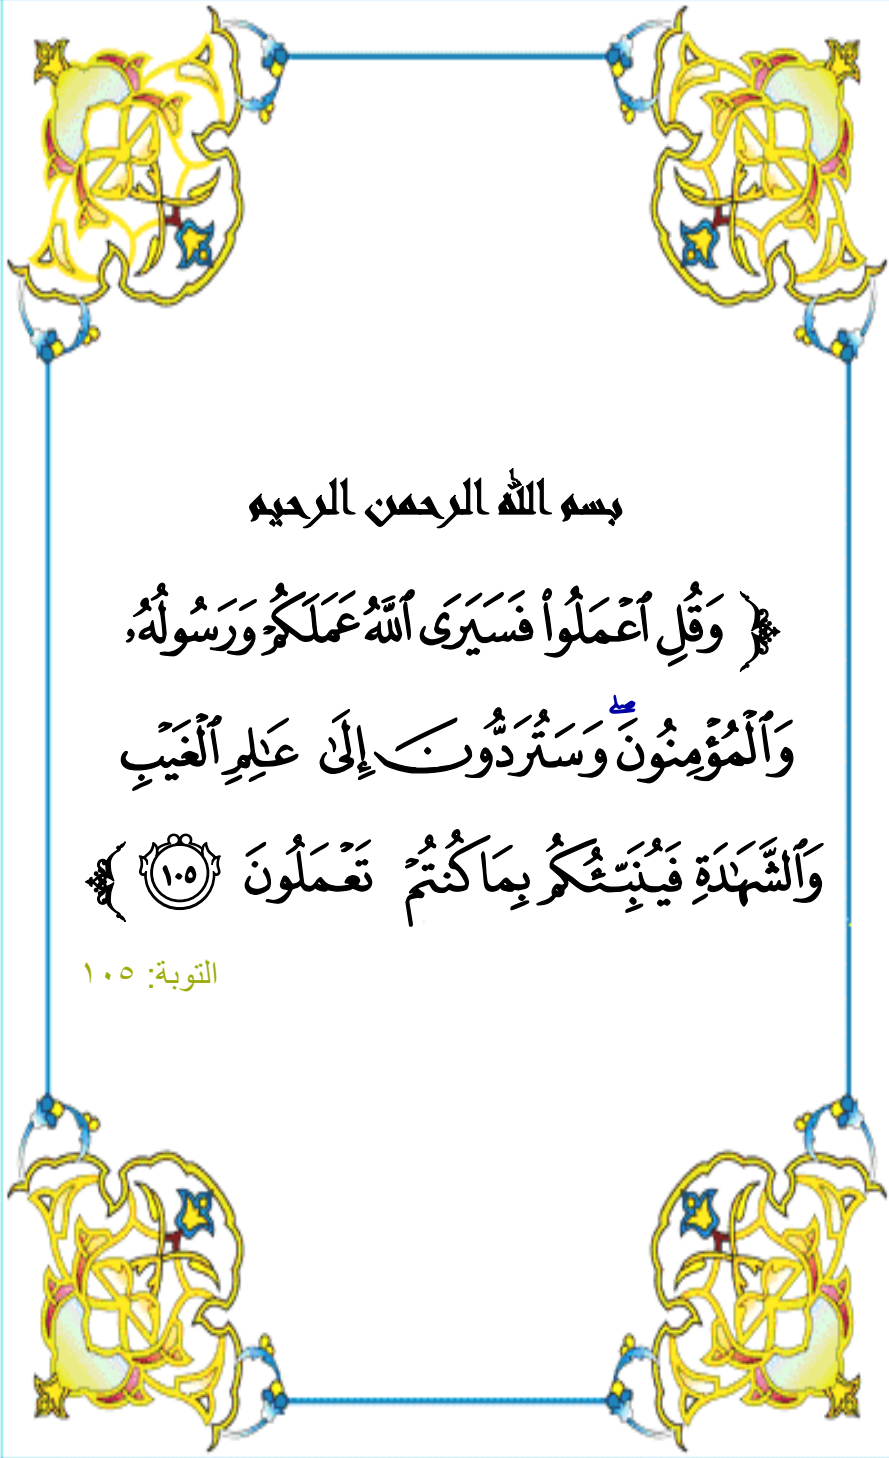 بسم الله الرحمن الرحيم
﴿ وَقُلِ ٱعۡمَلُواْ فَسَيَرَى ٱللَّهُ عَمَلَكُمۡ وَرَسُولُهُۥ
وَٱلۡمُؤۡمِنُونَۖ وَسَتُرَدُّونَ إِلَىٰ عَٰلِمِ ٱلۡغَيۡبِ
وَٱلشَّهَٰدَةِ فَيُنَبِّئُكُم بِمَا كُنتُمۡ تَعۡمَلُونَ ١٠٥ ﴾
التوبة: ١٠٥